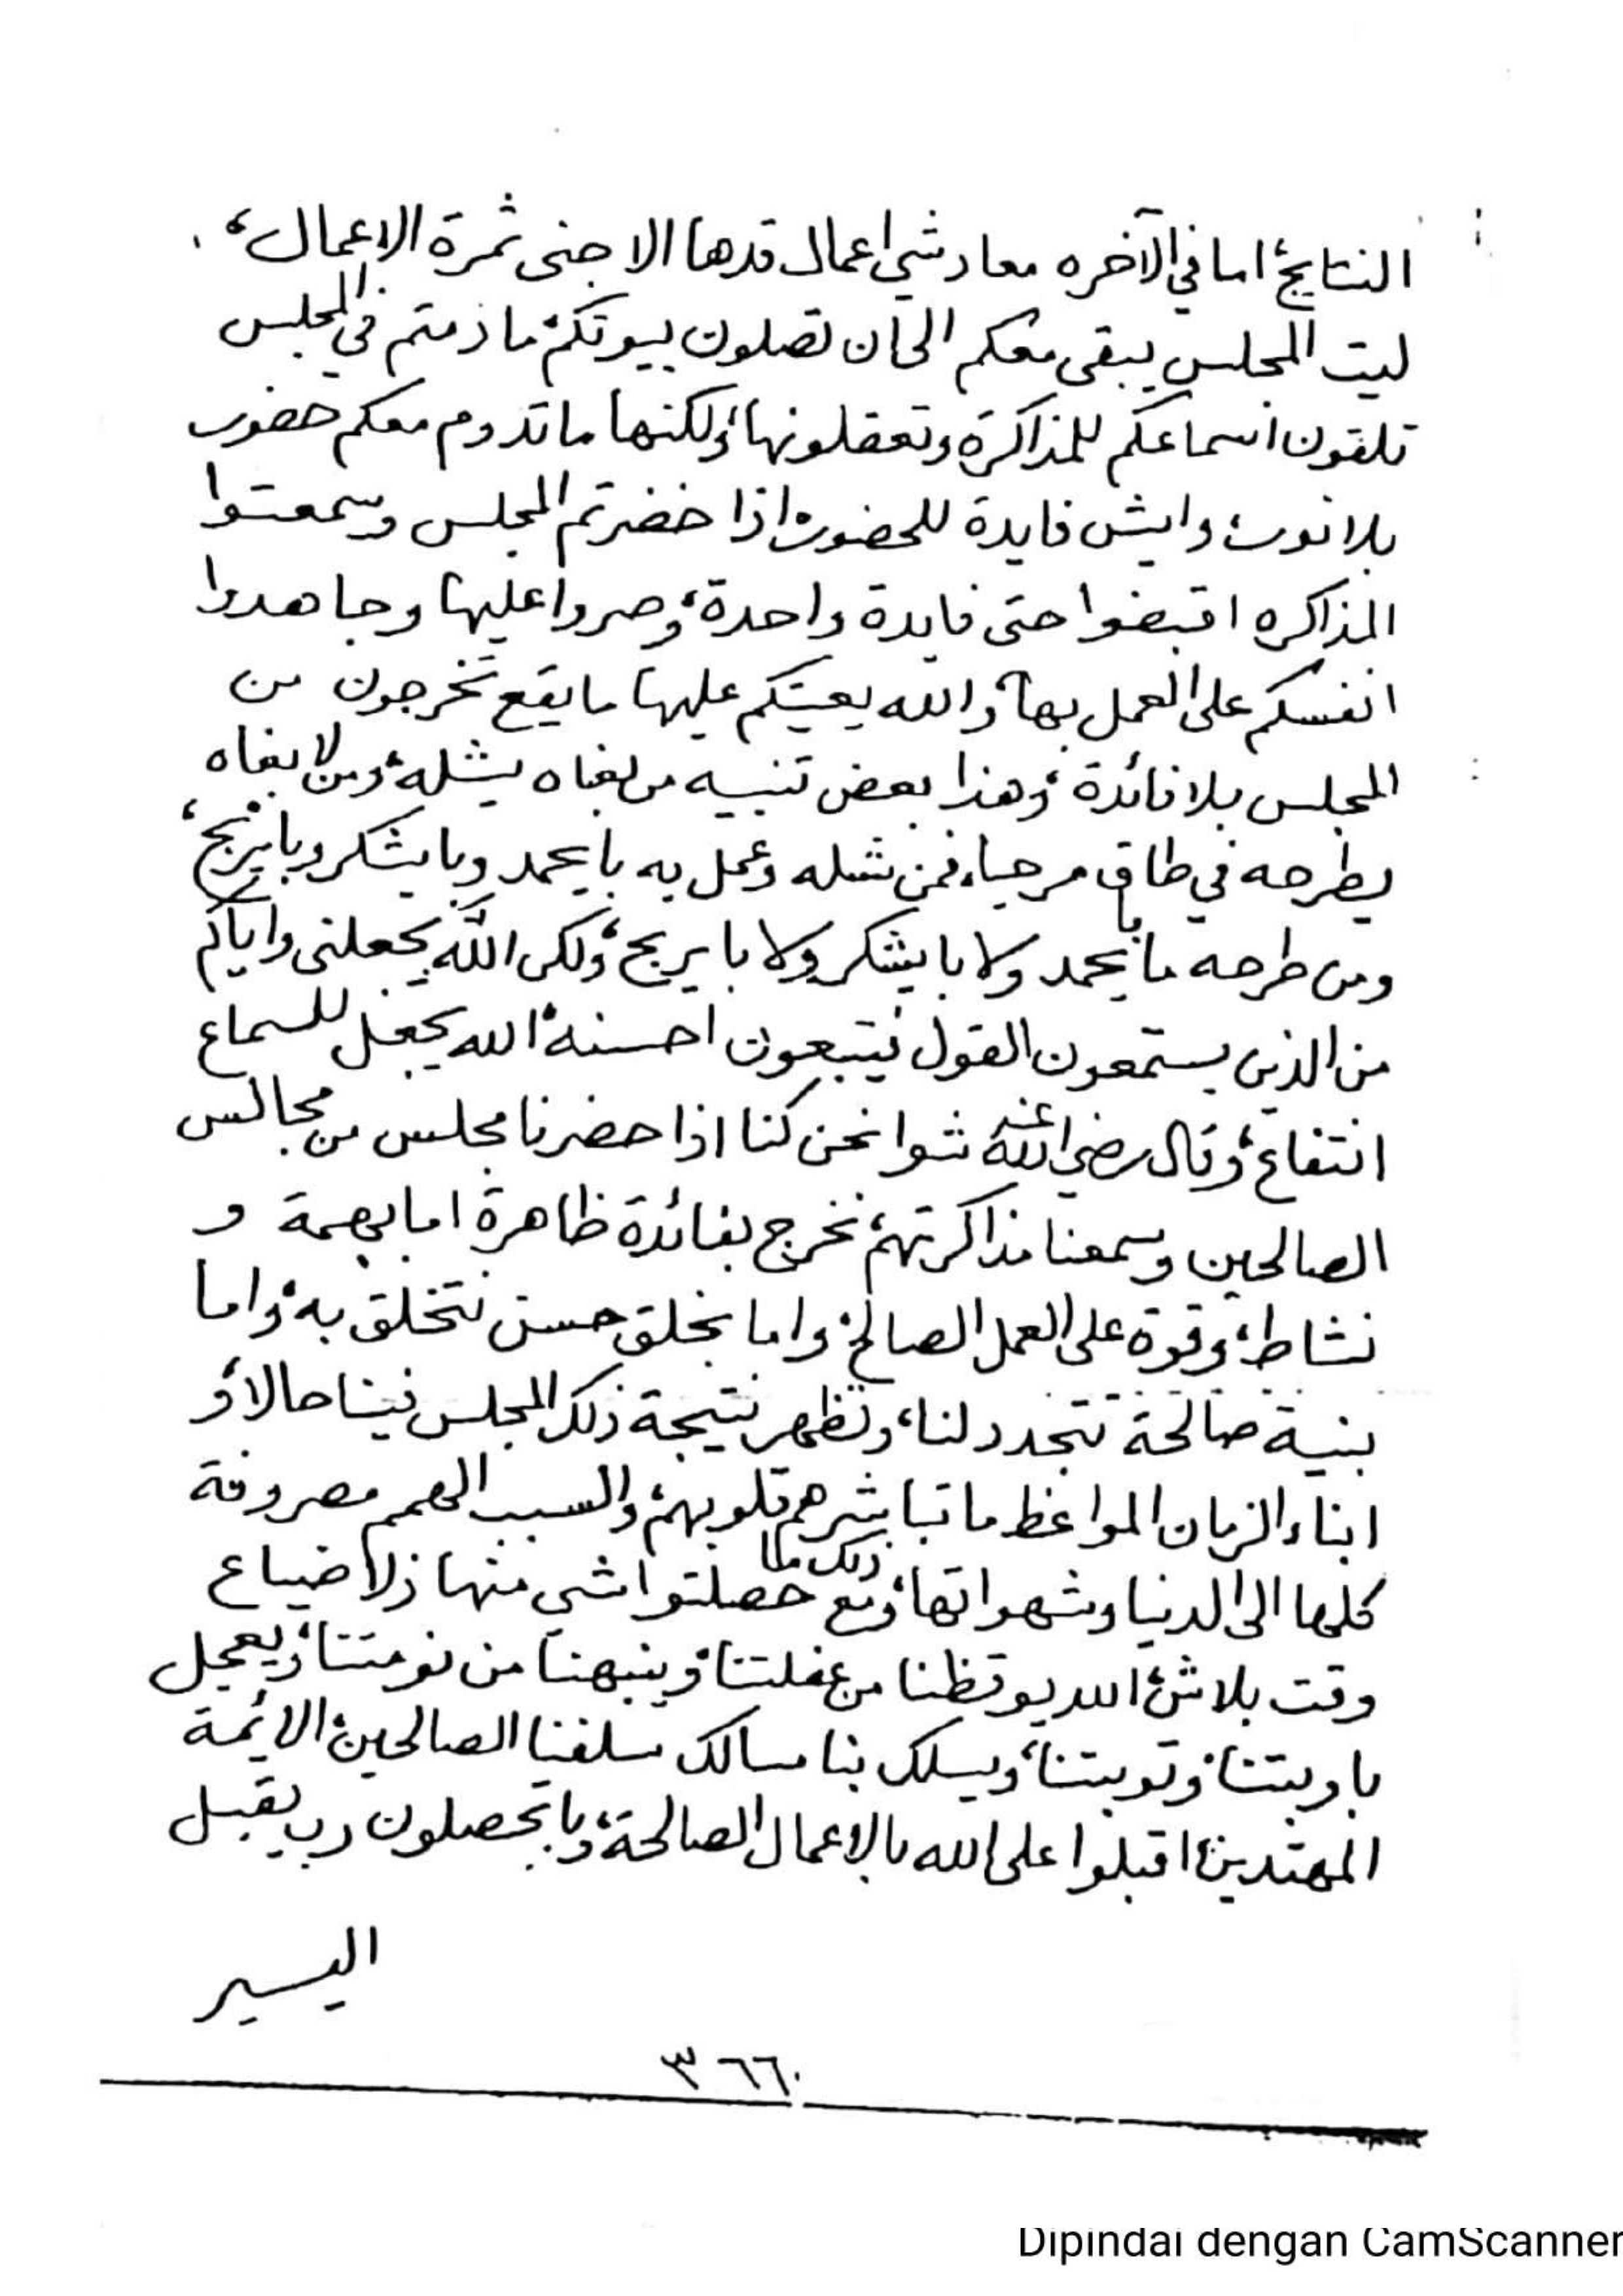 النتايج، اما في الآخره معاد شي اعمال قدها الا جنى ثمرة الاعمال،
ليت المجلس يبقى معكم الى ان تصلون بيوتكم، ما ذمتم في المجلس
تلقون اسماعكم للمذاكرة وتعقلونها، ولكنها ما تدوم معكم حضور
بلا نور، وايش فايدة للحضور، اذا حضرتم المجلس وسمعتوا
المذاكره اقبضوا حتى فايدة واحدة، وصروا عليها وجاهدوا
انفسكم على العمل بها، والله يعينكم عليها ما يقع تخرجون من
المجلس بلا فائدة، وهذا بعض تنبيه من بغاه يشله، ومن لا بغاه
يطرحه في طاق مرحبا، فمن شله وعمل به با يحمد وبا يشكر وبا يربح،
ومن طرحه ما با يحمد ولا با يشكر ولا با يربح، ولكن الله يجعلني واياكم
من الذين يستمعون القول فيتبعون احسنه، الله يجعل للسماع
انتفاع، وقال رضي الله عنه شوا نحن كنا اذا حضرنا مجلس من مجالس
الصالحين وسمعنا مذاكرتهم، نخرج بفائدة ظاهرة اما بهمة و
نشاط، وقوة على العمل الصالح، واما بخلق حسن نتخلق به، واما
بنية صالحة تتجدد لنا، وتظهر نتيجة ذلك المجلس فينا حالا، و
ابناء الزمان المواعظ ما تباشرهم قلوبهم، والسبب الهمم مصروفة
كلها الى الدنيا وشهواتها، ومع ذلك ما حصلتوا شي منها ذلا ضياع
وقت بلاش، الله يوقظنا من غفلتنا، وينبهنا من نومتنا، ويعجل
باوبتنا، وتوبتنا، ويسلك بنا مسالك سلفنا الصالحين، الائمة
المهتدين، اقبلوا على الله بالاعمال الصالحة، وبا تحصلون رب يقبل
اليسير
٣٦٦
Dipindai dengan CamScanner